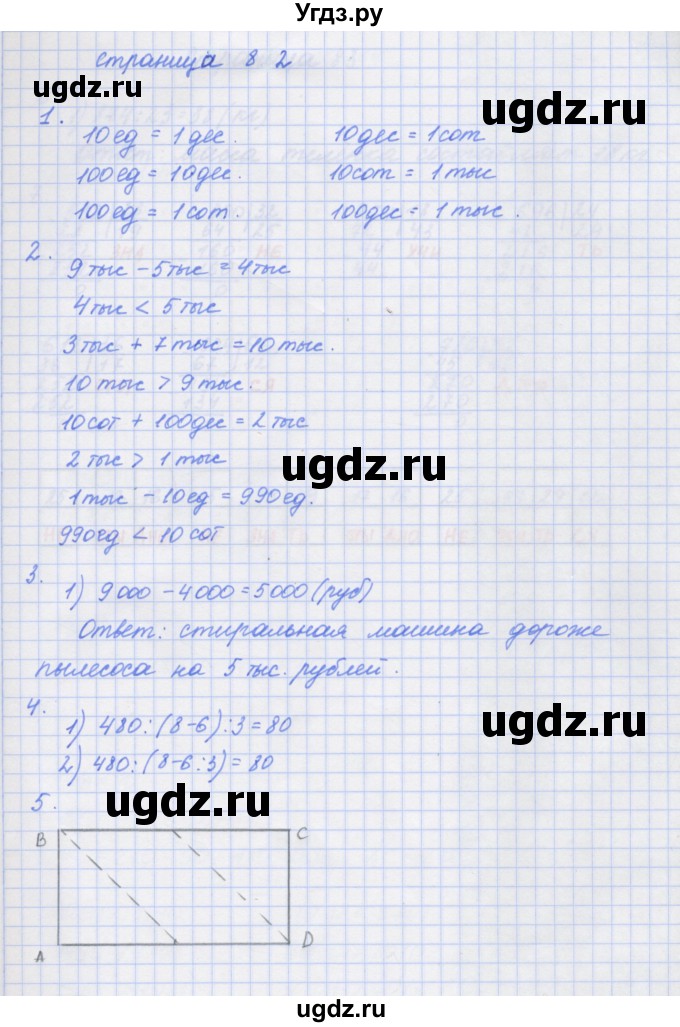 Угдз.ру
страница 82
ugdz.ru
ugdz.ru
1.
10ед = 1дес. 10дес = 1сот
100ед = 10дес. 10сот = 1тыс
100ед = 1сот. 100дес = 1тыс.
2.
9тыс - 5тыс = 4тыс
4тыс < 5тыс
3тыс + 7тыс = 10тыс.
10тыс > 9тыс.
10сот + 100дес = 2тыс
ugdz.ru
2тыс > 1тыс
1тыс - 10ед = 990ед.
990ед < 10сот
3.
1) 9000 - 4000 = 5000 (руб)
Ответ: стиральная машина дороже
пылесоса на 5тыс. рублей.
4.
1) 480:(8-6):3=80
ugdz.ru
2) 480:(8-6:3)=80
5.
ugdz.ru
B C
A D
ugdz.ru